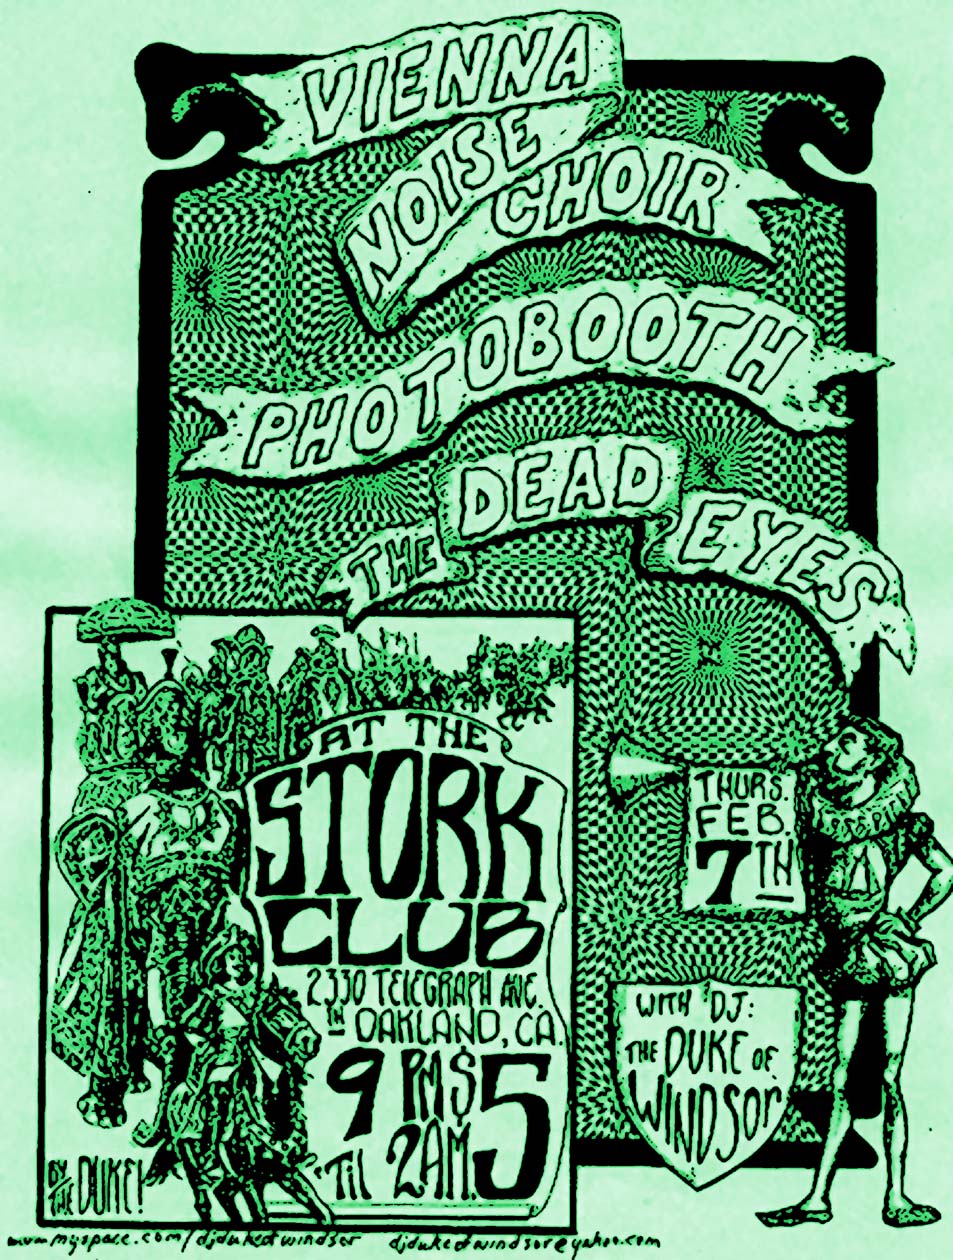 VIENNA
NOISE
CHOIR
PHOTOBOOTH
THE DEAD EYES
AT THE
STORK
CLUB
2330 TELEGRAPH AVE.
IN OAKLAND, CA.
9 PM $5
TIL 2AM.
THURS.
FEB.
7TH
WITH DJ:
THE DUKE OF
WINDSOR
BY THE DUKE!
www.myspace.com/djdukeofwindsor djdukeofwindsor@yahoo.com